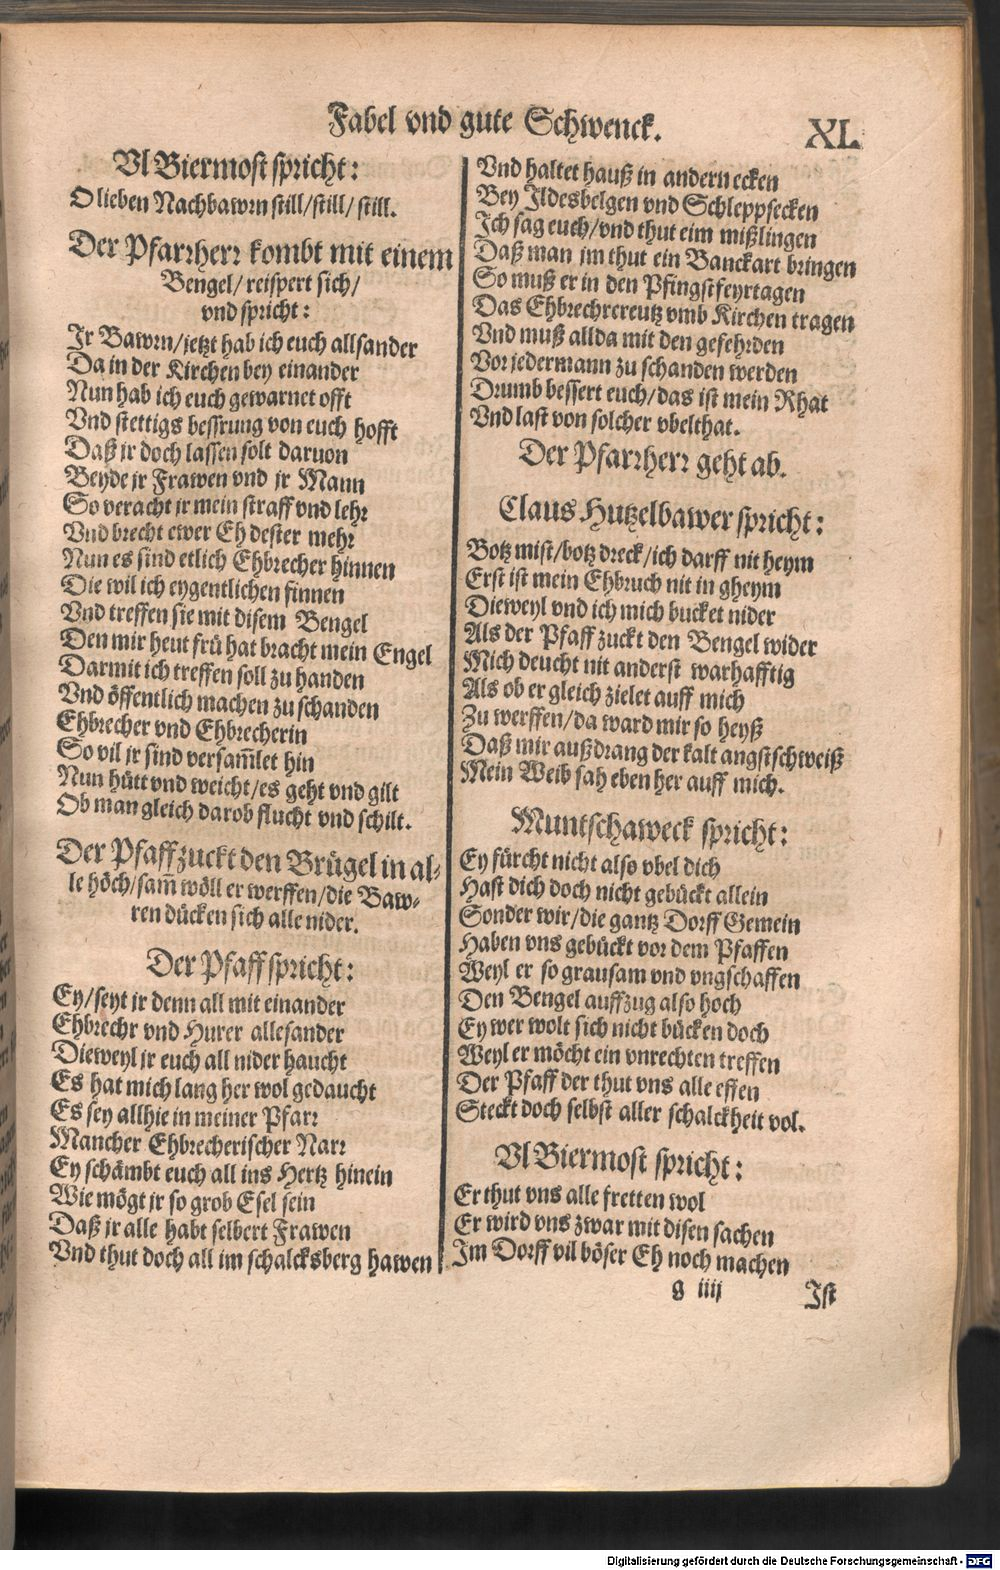 Fabel vnd gute Schwenck.
XL
Vl Biermost spricht:
O lieben Nachbawrn still/still/still.
Der Pfarrherr kombt mit einem
Bengel/reispert sich/
vnd spricht:
Ir Bawrn/jetzt hab ich euch allsander
Da in der Kirchen bey einander
Nun hab ich euch gewarnet offt
Vnd stettigs bessrung von euch hofft
Daß jr doch lassen solt daruon
Beyde jr Frawen vnd jr Mann
So veracht jr mein straff vnd lehr
Vnd brecht ewer Eh dester mehr
Nun es sind etlich Ehbrecher hinnen
Die wil ich eygentlichen finnen
Vnd treffen sie mit disem Bengel
Den mir heut frü hat bracht mein Engel
Darmit ich treffen soll zu handen
Vnd öffentlich machen zu schanden
Ehbrecher vnd Ehbrecherin
So vil jr sind versam̃let hin
Nun hütt vnd weicht/es geht vnd gilt
Ob man gleich darob flucht vnd schilt.
Der Pfaff zuckt den Brügel in al-
le höch/sam̃ wöll er werffen/die Baw-
ren dücken sich alle nider.
Der Pfaff spricht:
Ey/seyt jr denn all mit einander
Ehbrechr vnd Hurer allesander
Dieweyl jr euch all nider haucht
Es hat mich lang her wol gedaucht
Es sey allhie in meiner Pfarr
Mancher Ehbrecherischer Narr
Ey schämbt euch all ins Hertz hinein
Wie mögt jr so grob Esel sein
Daß jr alle habt selbert Frawen
Vnd thut doch all im schalcksberg hawen
Vnd haltet hauß in andern ecken
Bey Ildesbelgen vnd Schleppsecken
Ich sag euch/vnd thut eim mißlingen
Daß man jm thut ein Banckart bringen
So muß er in den Pfingstfeyrtagen
Das Ehbrechrcreutz vmb Kirchen tragen
Vnd muß allda mit den gefehrden
Vor jedermann zu schanden werden
Drumb bessert euch/das ist mein Rhat
Vnd last von solcher vbelthat.
Der Pfarrherr geht ab.
Claus Hutzelbawer spricht:
Botz mist/botz dreck/ich darff nit heym
Erst ist mein Ehbruch nit in gheym
Dieweyl vnd ich mich bucket nider
Als der Pfaff zuckt den Bengel wider
Mich deucht nit anderst warhafftig
Als ob er gleich zielet auff mich
Zu werffen/da ward mir so heyß
Daß mir außdrang der kalt angstschweiß
Mein Weib sah eben her auff mich.
Muntschaweck spricht:
Ey fürcht nicht also vbel dich
Hast dich doch nicht gebückt allein
Sonder wir/die gantz Dorff Gemein
Haben vns gebückt vor dem Pfaffen
Weyl er so grausam vnd vngschaffen
Den Bengel auffzug also hoch
Ey wer wolt sich nicht bücken doch
Weyl er möcht ein vnrechten treffen
Der Pfaff der thut vns alle effen
Steckt doch selbst aller schalckheit vol.
Vl Biermost spricht:
Er thut vns alle fretten wol
Er wird vns zwar mit disen sachen
Im Dorff vil böser Eh noch machen
g iiij
Ist
Digitalisierung gefördert durch die Deutsche Forschungsgemeinschaft - DFG